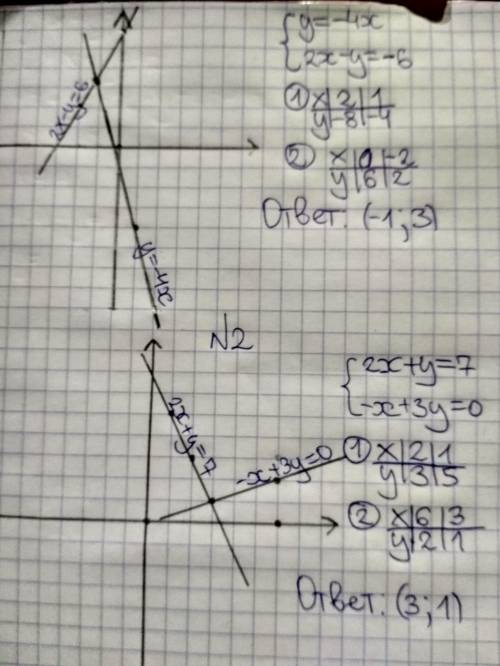 y=-4x
2x-y=-6
① x|2|1
y|-8|-4
② x|0|-2
y|6|2
Ответ: (-1;3)
2x-y=6
y=-4x
N2
2x+y=7
-x+3y=0
① x|2|1
y|3|5
② x|6|3
y|2|1
Ответ: (3;1)
2x+y=7
-x+3y=0